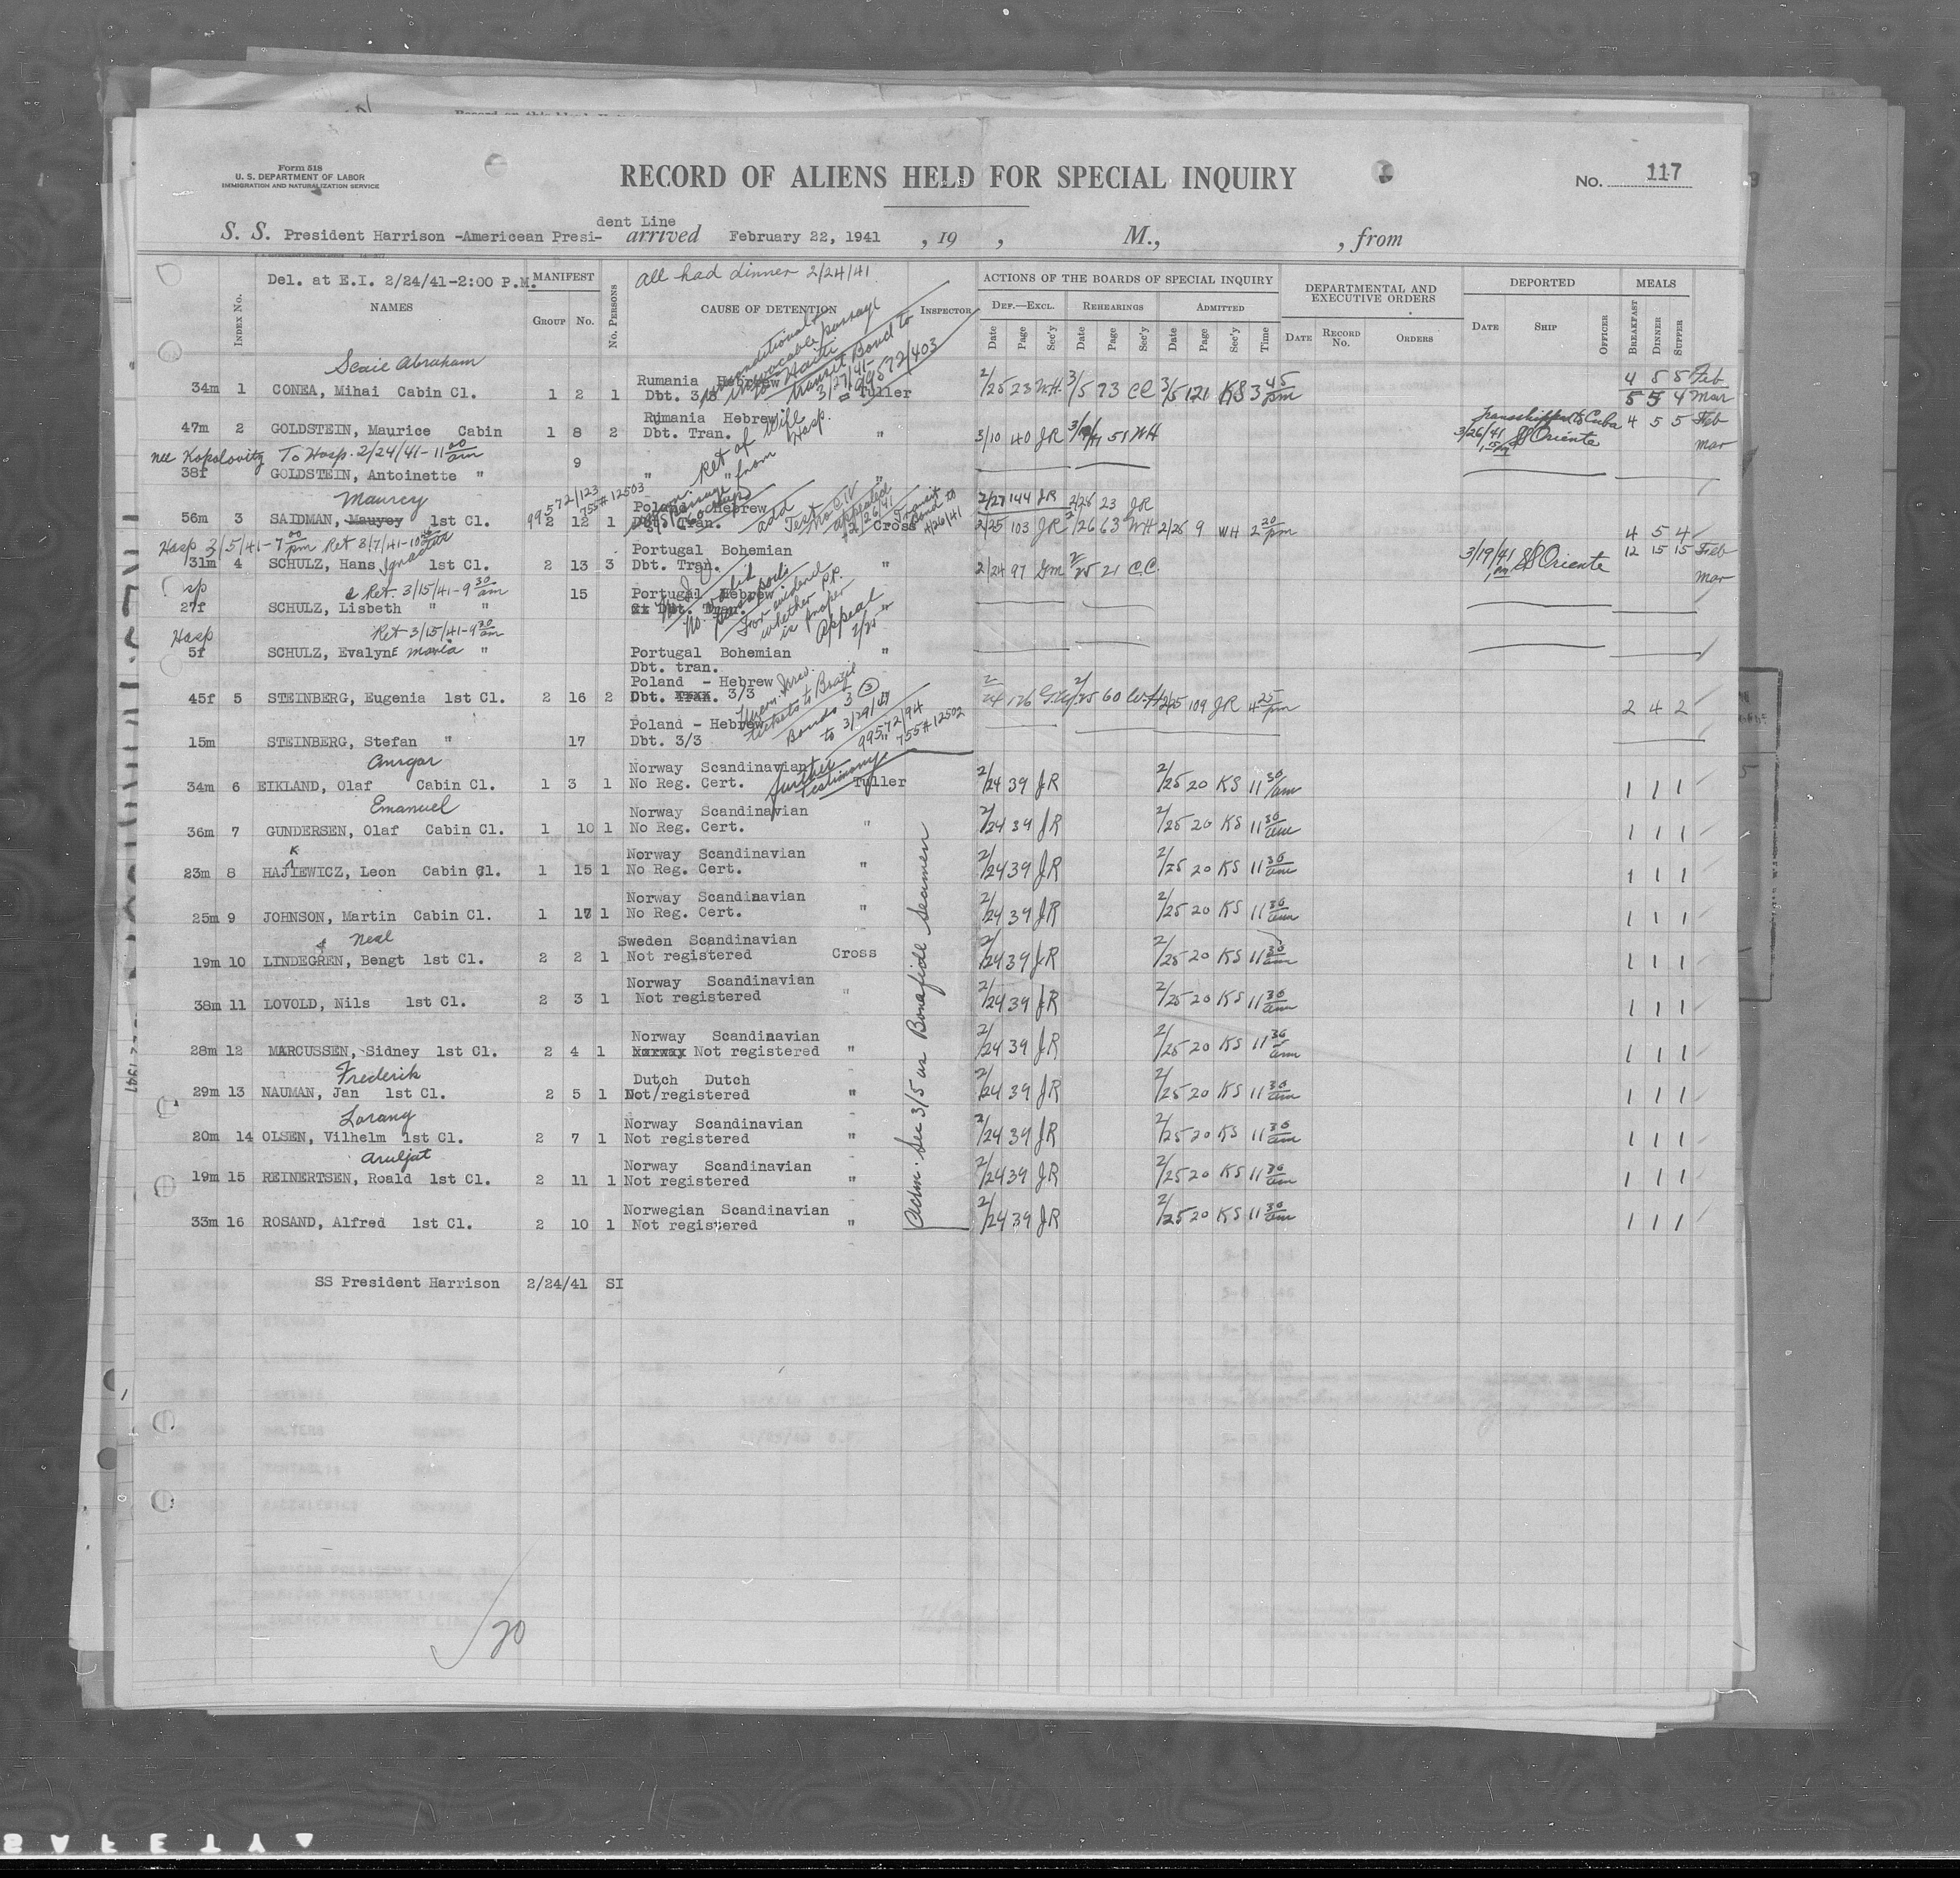 Form 518
U. S. DEPARTMENT OF LABOR
IMMIGRATION AND NATURALIZATION SERVICE
RECORD OF ALIENS HELD FOR SPECIAL INQUIRY
No. 117
dent Line
S. S. President Harrison -Americean Presi- arrived February 22, 1941 , 19 , M., , from
Del. at E.I. 2/24/41-2:00 P.M. MANIFEST all had dinner 2/24/41 ACTIONS OF THE BOARDS OF SPECIAL INQUIRY DEPARTMENTAL AND EXECUTIVE ORDERS DEPORTED MEALS
Index No. NAMES Group No. No. Persons CAUSE OF DETENTION Inspector Def.—Excl. Rehearings Admitted
Date Page Sec'y Date Page Sec'y Date Page Sec'y Time Date Record No. Orders Date Ship Officer Breakfast Dinner Supper
Scaic Abraham
unconditional & irrevocable passage to Haiti transit Bond to 3/27/41- 99572/403
Rumania Hebrew 4 5 5 Feb
34m 1 CONEA, Mihai Cabin Cl. 1 2 1 Dbt. 3/3 Tuller 2/25 23 W.H. 3/5 73 CC 3/5 121 KS 3 45 pm 5 5 4 Mar
Rumania Hebrew transshipped to Cuba 4 5 5 Feb
47m 2 GOLDSTEIN, Maurice Cabin 1 8 2 Dbt. Tran. " 3/10 40 JR 51 WH 3/26/41 SS Oriente Mar
nee Kopolovitz To Hosp. 2/24/41-11 00 am 9
Ret of Wife from Hosp.
38f GOLDSTEIN, Antoinette " " " "
Maurcy 99572/123 755#12503 Poland Hebrew 2/27 144 JR 2/28 23 JR
56m 3 SAIDMAN, Mauyey 1st Cl. 2 12 1 Dbt. Tran. Cross 2/25 103 JR 2/26 63 WH 2/26 9 WH 2 20 pm 4 5 4
Transit Bond to 4/26/41
Hosp 3/5/41-7 00 pm Ret 8/7/41-10 Ignatius Portugal Bohemian 12 15 15 Feb
31m 4 SCHULZ, Hans 1st Cl. 2 13 3 Dbt. Tran. " 2/24 97 2/25 21 C.C. 3/19/41 SS Oriente Mar
Ret. 3/15/41-9 30 am 15 Portugal Hebrew
27f SCHULZ, Lisbeth " " Dbt. Tran. "
for evidence whether p.p. is proper Appeal 2/25
Hosp Ret 3/15/41-9 30 am
5f SCHULZ, EvalynE Maria " Portugal Bohemian "
Dbt. tran.
Poland - Hebrew
45f 5 STEINBERG, Eugenia 1st Cl. 2 16 2 Dbt. Tran. 3/3 2/24 126 2/25 60 W.H. 2/25 109 JR 4 25 pm 2 4 2
tickets to Brazil Bonds 3 to 3/29/41 99572/94 755#12502
Poland - Hebrew
15m STEINBERG, Stefan " 17 Dbt. 3/3
Ansgar Norway Scandinavian
34m 6 EIKLAND, Olaf Cabin Cl. 1 3 1 No Reg. Cert. further testimony Tuller 2/24 39 JR 2/25 20 KS 11 30 am 1 1 1
Emanuel Norway Scandinavian
36m 7 GUNDERSEN, Olaf Cabin Cl. 1 10 1 No Reg. Cert. " 2/24 39 JR 2/25 20 KS 11 30 am 1 1 1
K Norway Scandinavian
23m 8 HAJIEWICZ, Leon Cabin Cl. 1 15 1 No Reg. Cert. " 2/24 39 JR 2/25 20 KS 11 30 am 1 1 1
Norway Scandinavian
25m 9 JOHNSON, Martin Cabin Cl. 1 17 1 No Reg. Cert. " 2/24 39 JR 2/25 20 KS 11 30 am 1 1 1
Neal Sweden Scandinavian
19m 10 LINDEGREN, Bengt 1st Cl. 2 2 1 Not registered Cross 2/24 39 JR 2/25 20 KS 11 30 am 1 1 1
Norway Scandinavian
38m 11 LOVOLD, Nils 1st Cl. 2 3 1 Not registered " 2/24 39 JR 2/25 20 KS 11 30 am 1 1 1
Norway Scandinavian
28m 12 MARCUSSEN, Sidney 1st Cl. 2 4 1 Norway Not registered " 2/24 39 JR 2/25 20 KS 11 30 am 1 1 1
Frederik Dutch Dutch
29m 13 NAUMAN, Jan 1st Cl. 2 5 1 Not/registered " 2/24 39 JR 2/25 20 KS 11 30 am 1 1 1
Lorang Norway Scandinavian
20m 14 OLSEN, Vilhelm 1st Cl. 2 7 1 Not registered " 2/24 39 JR 2/25 20 KS 11 30 am 1 1 1
Aruljat Norway Scandinavian
19m 15 REINERTSEN, Roald 1st Cl. 2 11 1 Not registered " 2/24 39 JR 2/25 20 KS 11 30 am 1 1 1
Norwegian Scandinavian
33m 16 ROSAND, Alfred 1st Cl. 2 10 1 Not registered " 2/24 39 JR 2/25 20 KS 11 30 am 1 1 1
Adm. Sec 3/5 as Bonafide Seamen
SS President Harrison 2/24/41 SI
20
SAFETY